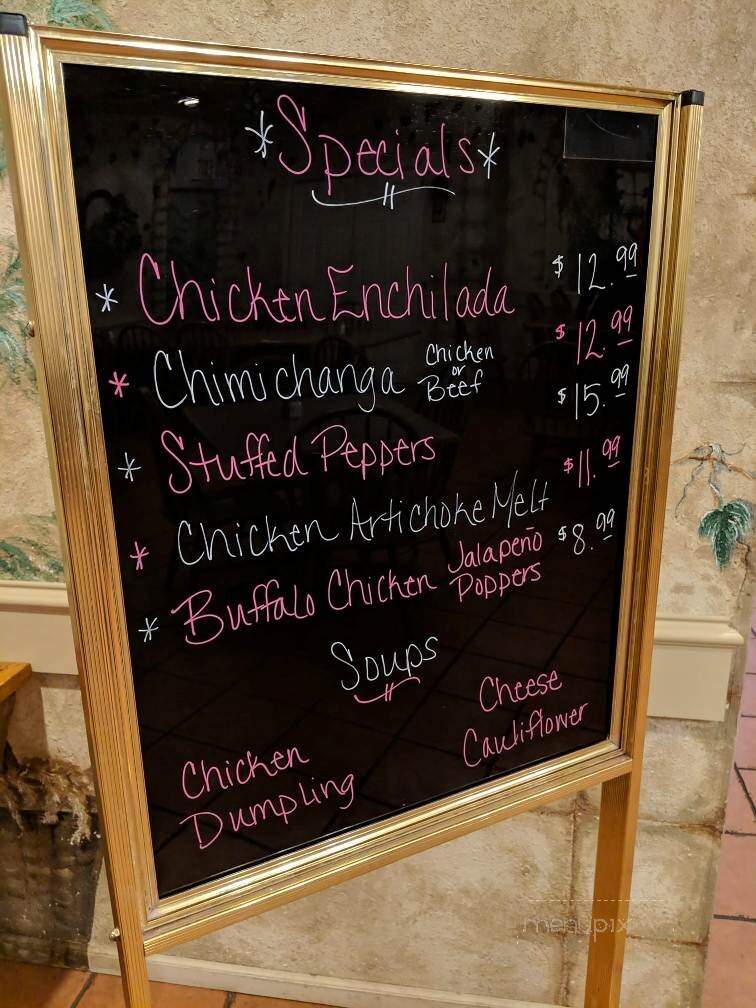 *Specials*
* Chicken Enchilada $12.99
* Chimichanga Chicken or Beef $12.99
* Stuffed Peppers $15.99
* Chicken Artichoke Melt $11.99
* Buffalo Chicken Jalapeño Poppers $8.99
Soups
Chicken Dumpling
Cheese Cauliflower
menupix